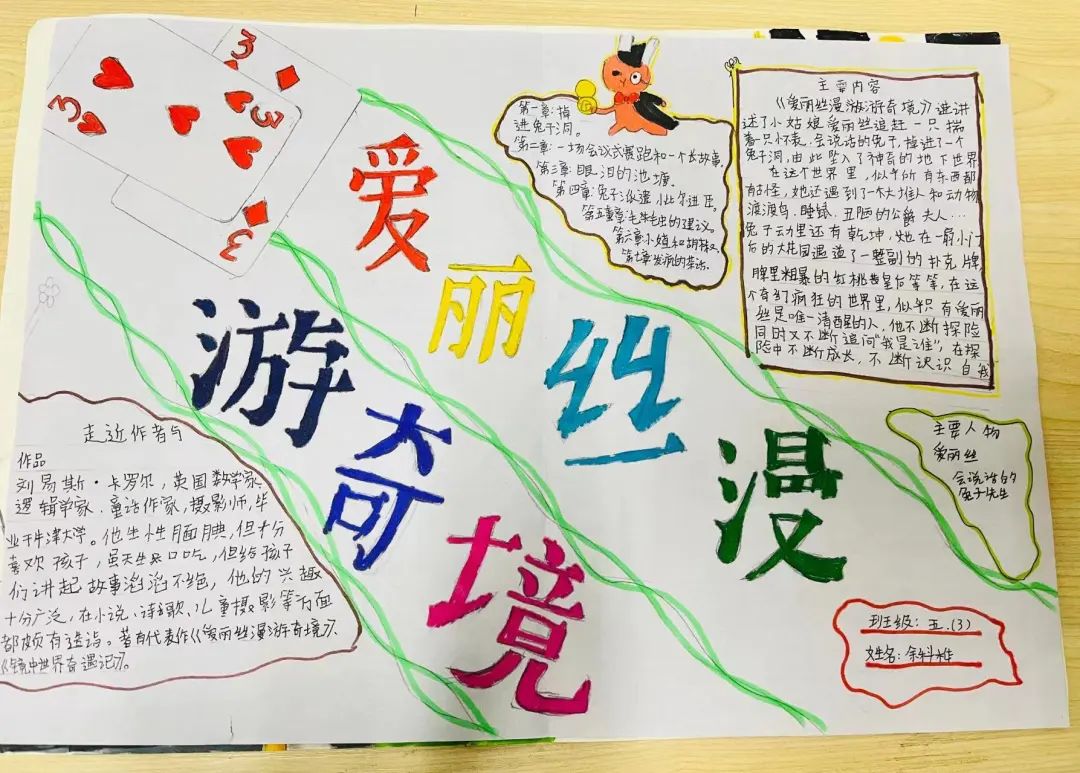 3
3
3
3
爱
丽
丝
漫
游
奇
境
第一章:掉
进兔子洞。
第二章:一场会议式赛跑和一个长故事,
第三章:眼泪的池塘。
第四章:兔子派遣小比尔进屋,
第五章:毛毛虫的建议。
第六章小猪和胡椒
第七章发疯的茶话。
主要内容
《爱丽丝漫游奇境》进讲
述了小姑娘爱丽丝追赶一只揣
着只怀表、会说话的兔子,掉进了一个
兔子洞,由此坠入了神奇的地下世界
在这个世界里,似乎所有东西都
有古怪,她还遇到了一大堆人和动物
渡渡鸟、睡鼠、丑陋的公爵夫人…
兔子云力里还有乾坤,她在一扇小门
后的大花园遇造了一整副的扑克牌
牌里粗暴的红桃皇后等等,在这
个奇幻疯狂的世界里,似乎只有爱丽
丝是唯一清醒的人,他不断探险
同时又不断追问"我是谁",在探
险中不断成长,不断认识自我
走近作者与
作品
刘易斯·卡罗尔,英国数学家
逻辑学家、童话作家、摄影师,毕
业于牛津大学。他生性腼腆,但十分
喜欢孩子,虽天生口吃,但给孩子
们讲起故事滔滔不绝,他的兴趣
十分广泛,在小说、诗歌、儿童摄影等方面
都颇有造诣。著有代表作《爱丽丝漫游奇境》、
《镜中世界奇遇记》。
主要人物
爱丽丝
会说话的
兔子先生
班级:五.(3)
姓名:余科桦